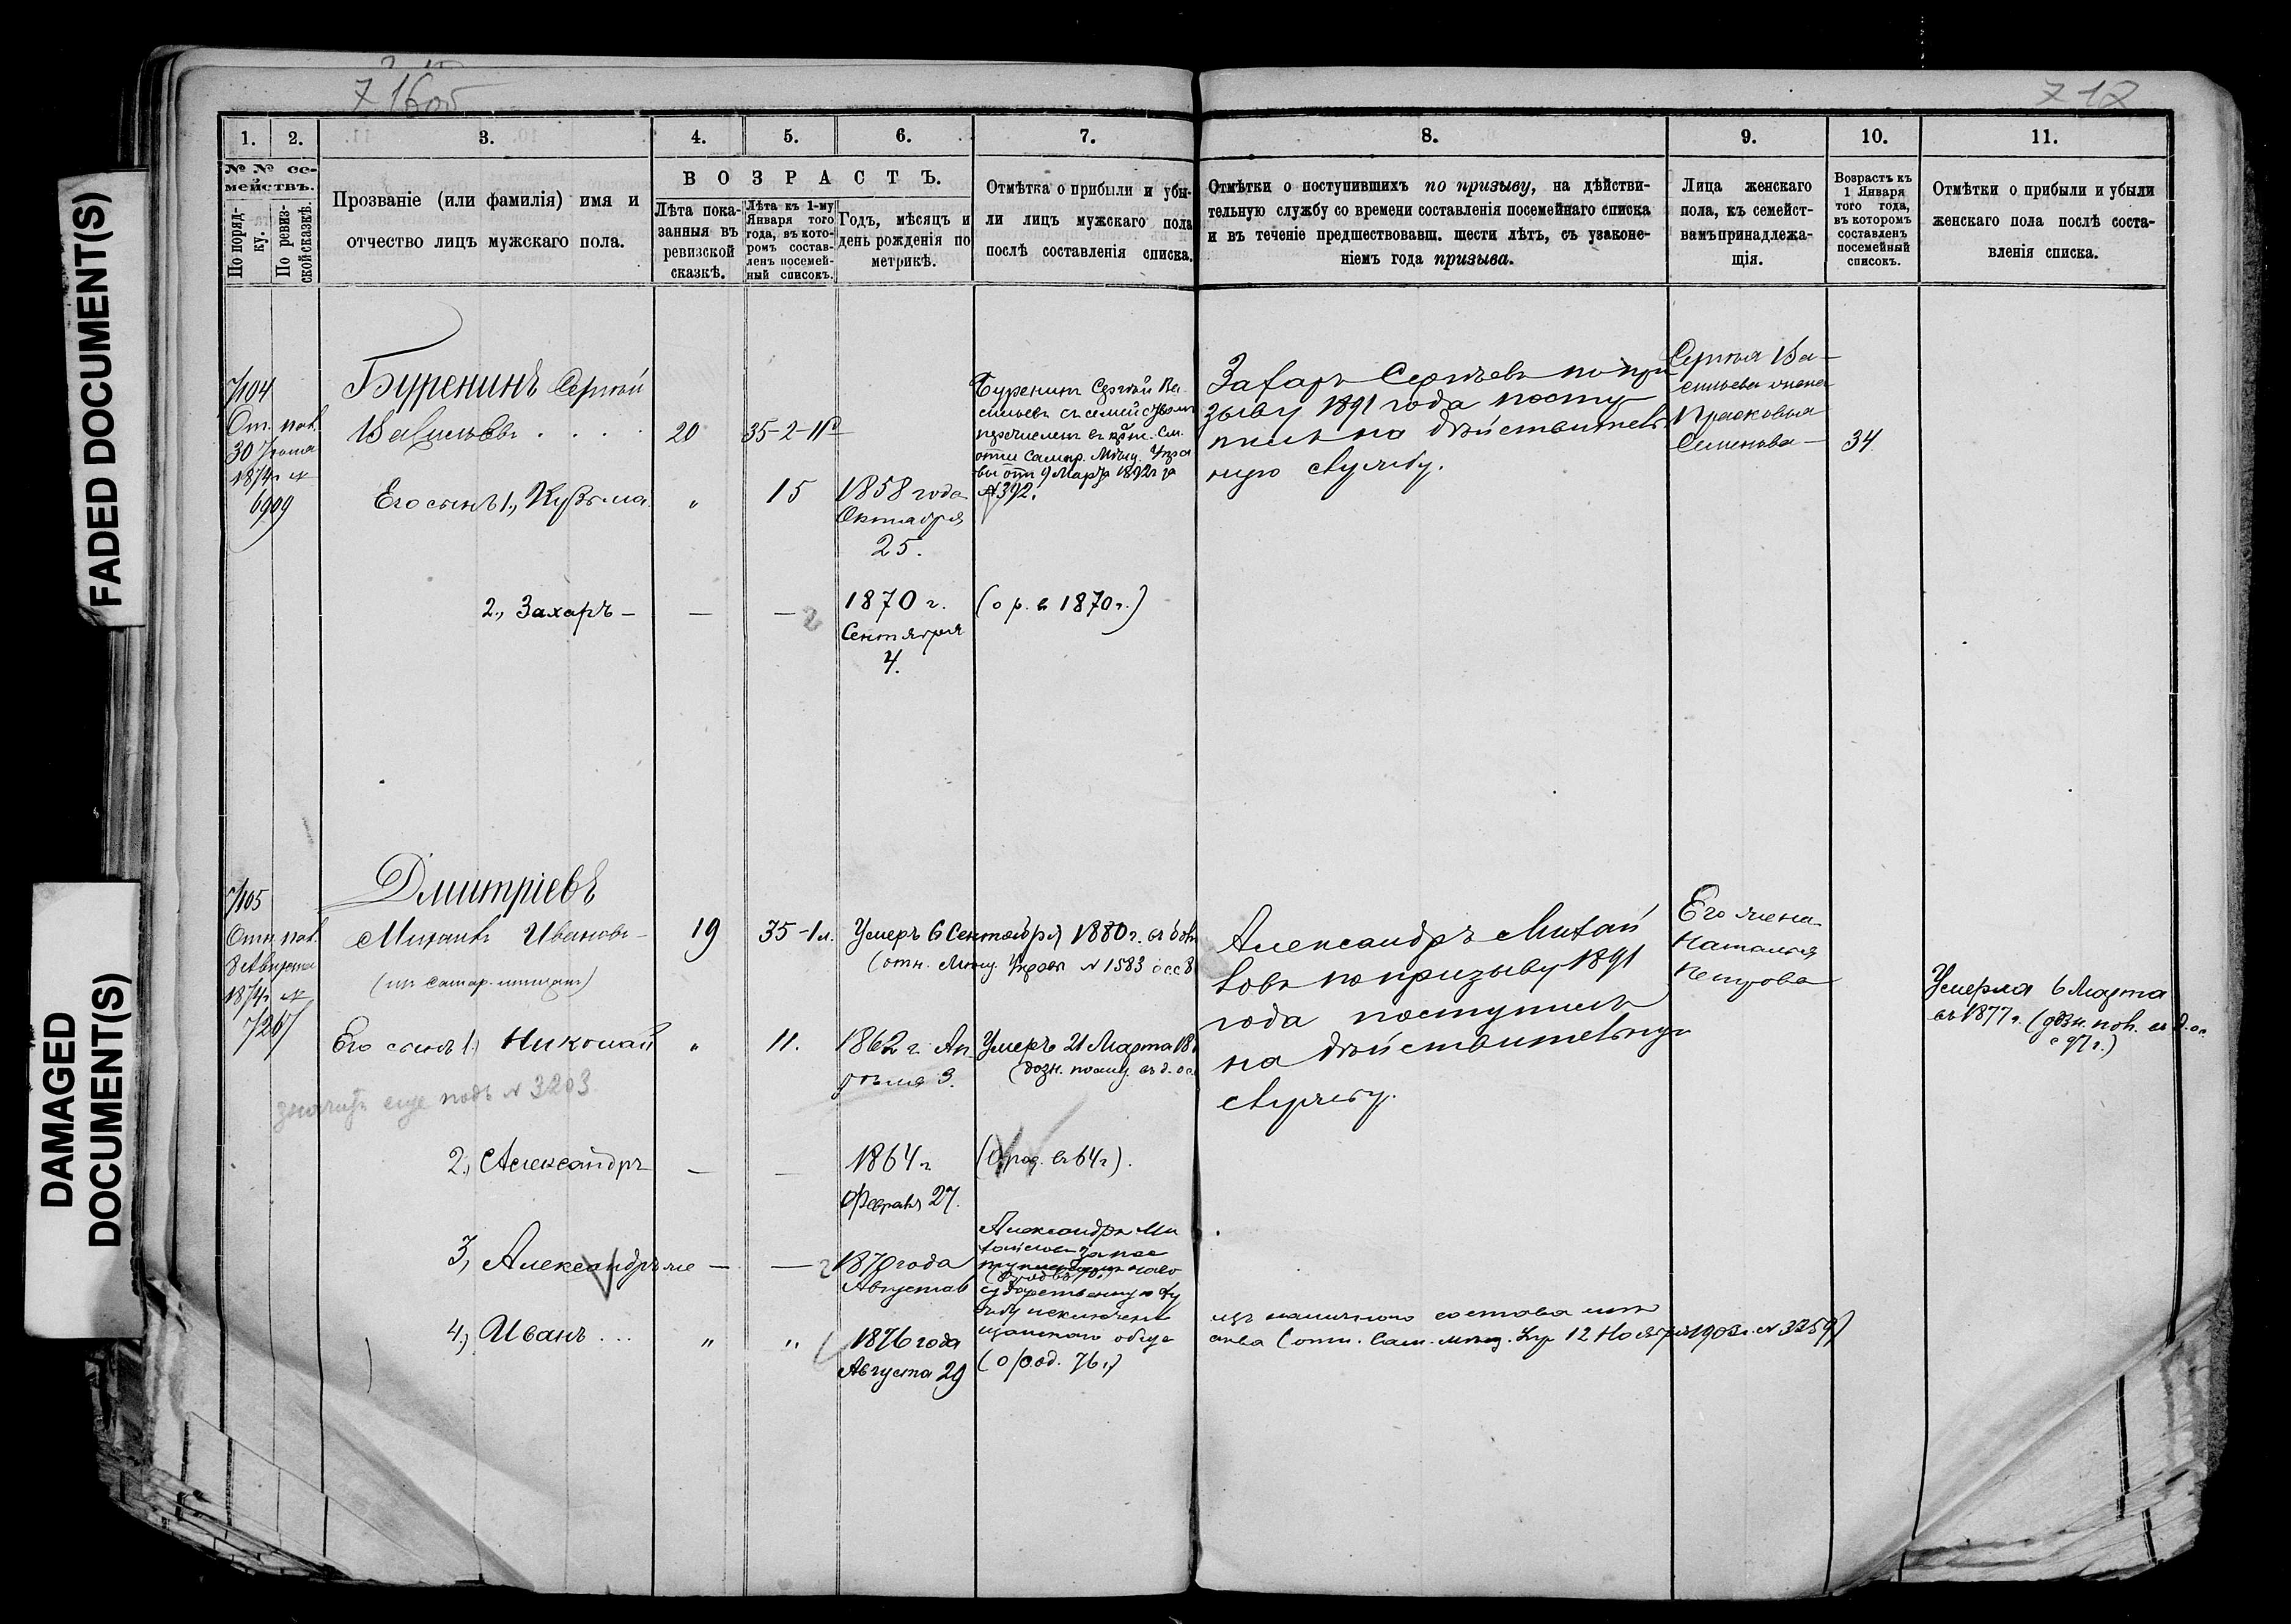 716об
717
FADED DOCUMENT(S)
DAMAGED
DOCUMENT(S)
1.
2.
3.
4.
5.
6.
7.
8.
9.
10.
11.
№ № се-
мействъ.
По поряд-
ку.
По ревиз-
ской сказкѣ.
Прозваніе (или фамилія) имя и
отчество лицъ мужскаго пола.
ВОЗРАСТЪ.
Лѣта пока-
занныя въ
ревизской
сказкѣ.
Лѣта къ 1-му
Января того
года, въ кото-
ромъ состав-
ленъ посемей-
ный списокъ.
Годъ, мѣсяцъ и
день рожденія по
метрикѣ.
Отмѣтка о прибыли и убы-
ли лицъ мужскаго пола
послѣ составленія списка.
Отмѣтки о поступившихъ по призыву, на дѣйстви-
тельную службу со времени составленія посемейнаго списка
и въ теченіе предшествовавш. шести лѣтъ, съ узаконе-
ніемъ года призыва.
Лица женскаго
пола, къ семейст-
вамъ принадлежа-
щія.
Возрастъ къ
1 Января
того года,
въ которомъ
составленъ
посемейный
списокъ.
Отмѣтки о прибыли и убыли
женскаго пола послѣ соста-
вленія списка.
7104
30 Іюня
1874 г №
6909
Буренинъ Сергѣй
Васильевъ . . . .
20
35-2-
Буренинъ Сергѣй Ва
сильевъ съ семействомъ
перечисленъ въ
Самар. Мѣщ. Упра
вы отъ 9 Марта 1892 г за
№ 392.
Захаръ Сергѣевъ по при
зыву 1891 года посту
пилъ на дѣйствитель
ную службу.
Сергѣя Ва-
сильева жена
Прасковья
Семенова —
34
Его сынъ 1., Кузьма
"
15
1858 года
Октября
25.
2., Захаръ —
—
—
2
1870 г.
Сентября
4.
(о р. в 1870 г.)
7105
8 Августа
1874 г №
7267
Дмитріевъ
Михаилъ Ивановъ —
19
35-1 м.
Умеръ 6 Сентября 1880 г.
(отн. Мѣщ. Управ № 1583
Александръ Михай
ловъ по призыву 1891
года поступилъ
на дѣйствительную
службу.
Его жена
Наталья
Петрова
Умерла 6 Марта
въ 1877 г.
Его сынъ 1) Николай
"
11.
1862 г. Ап
рѣля 3.
Умеръ 21 Марта
значит еще подъ № 3203
2., Александръ
—
—
1864 г
Февраля 27.
(О род. въ 64 г).
3, Александръ же
—
—
2
1870 года
Августа
Александръ Ми
хайловъ за пос
сударственную слу
жбу исключенъ
изъ наличнаго состава мѣ
щанскаго обще
ства (отн. Сам. мѣщ. Упр 12 Ноября 1903 г. № 3259)
4., Иванъ . . .
"
"
1876 года
Августа 29
(о род. 76 г)